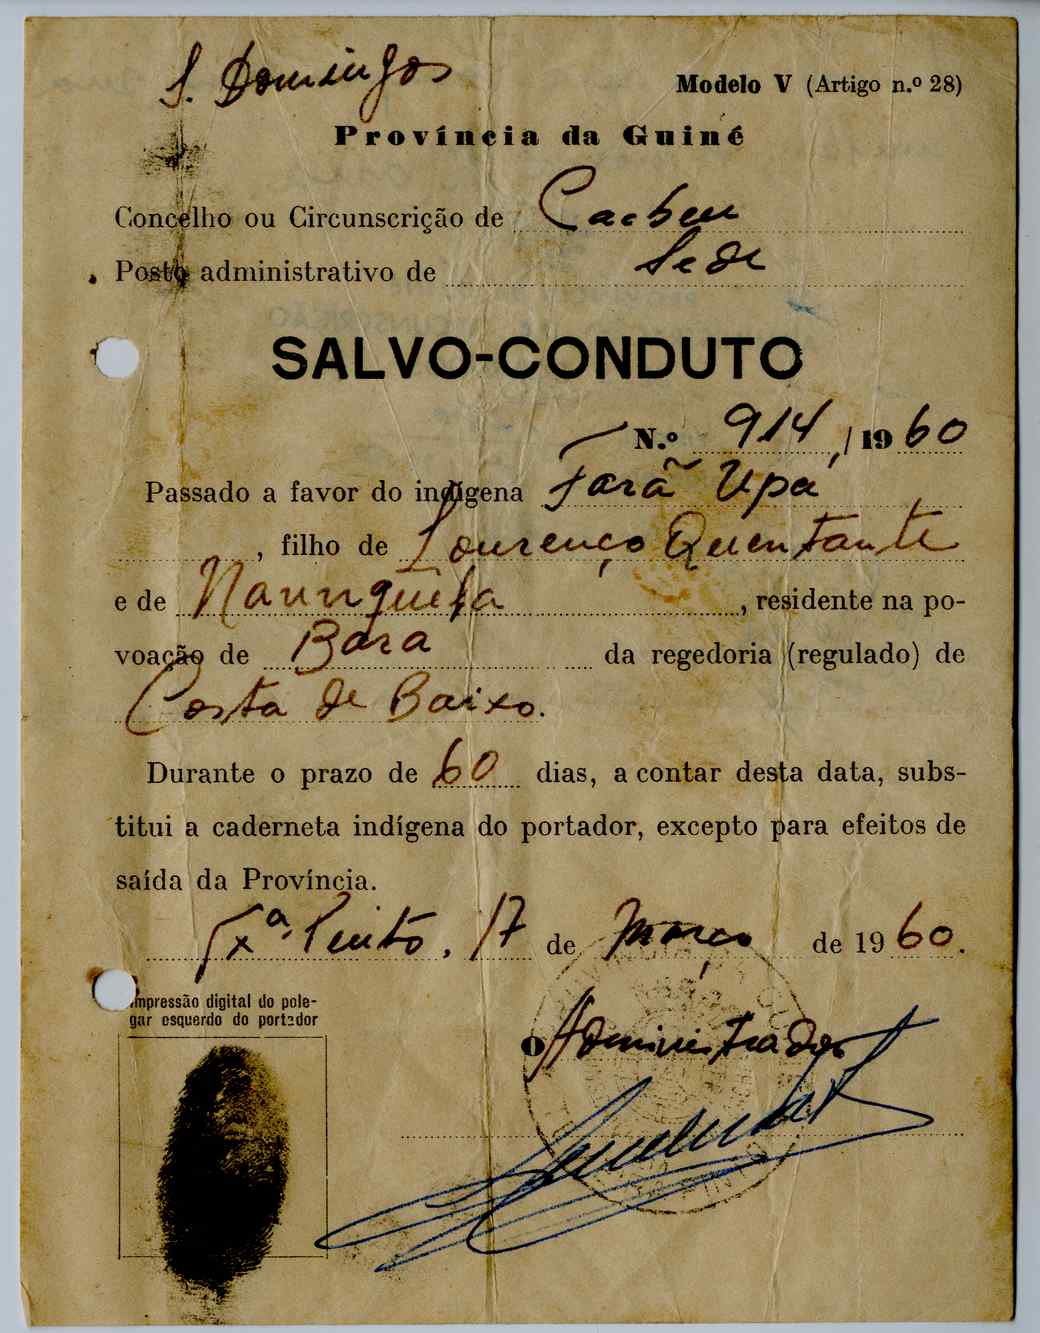 S. Domingos
Modelo V (Artigo n.º 28)
Província da Guiné
Concelho ou Circunscrição de Cacheu
Posto administrativo de Sede
SALVO-CONDUTO
N.º 914/1960
Passado a favor do indígena Farã Upá
, filho de Lourenço Quentante
e de Naunguêfa, residente na po-
voação de Bara da regedoria (regulado) de
Costa de Baixo.
Durante o prazo de 60 dias, a contar desta data, subs-
titui a caderneta indígena do portador, excepto para efeitos de
saída da Província.
Txª. Pinto, 17 de Março de 1960.
Impressão digital do pole-
gar esquerdo do portador
O Administrador